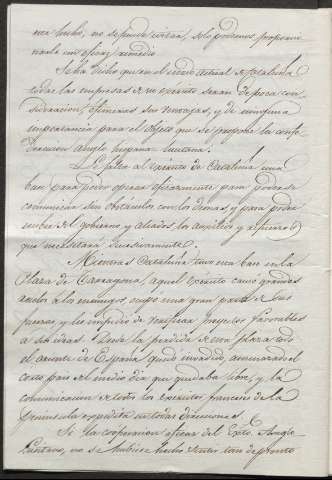 mea hecho, no se puede evitar, solo podremos proporcio
narle un eficaz remedio
Se ha dicho que en el estado actual de Cataluña
todas las empresas de su exército seran de poca con
sideracion, efimeras sus ventajas, y de ninguna
importancia para el objeto que se propone la confe
deracion Anglo hispana lusitana.
Le falta al exército de Cataluña una
base para poder operar eficazmente para poderse
comunicar sin obstáculos con los demas, y para poder
recibir del gobierno y aliados los auxilios y refuerzos
que necesitará sucesivamente.
Mientras Cataluña tuvo una base en la
Plaza de Tarragona, aquel exército causó grandes
males a los enemigos, ocupó una gran parte de sus
fuerzas, y les impidió de verificar proyectos favorables
a sus ideas. Desde la perdida de esta plaza todo
el oriente de España quedó invadido, amenazado el
corto pais del medio dia que quedaba libre, y la
comunicacion de todos los exércitos franceses de la
Peninsula expedita en todas direcciones.
Si la cooperacion eficaz del Exto. Anglo
Lusitano, no se hubiese hecho sentir tan de pronto